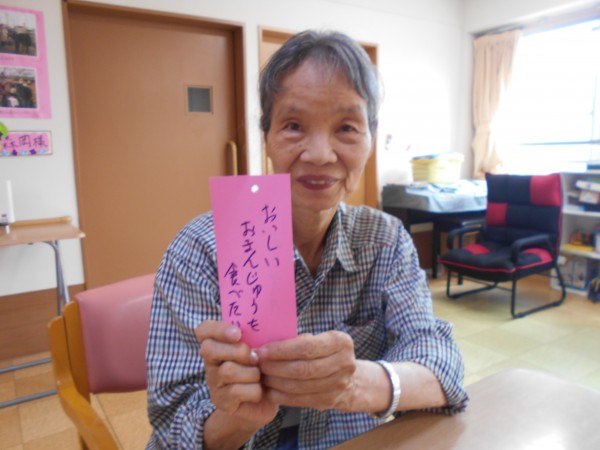 おいしい
おまんじゅうも
食べたい